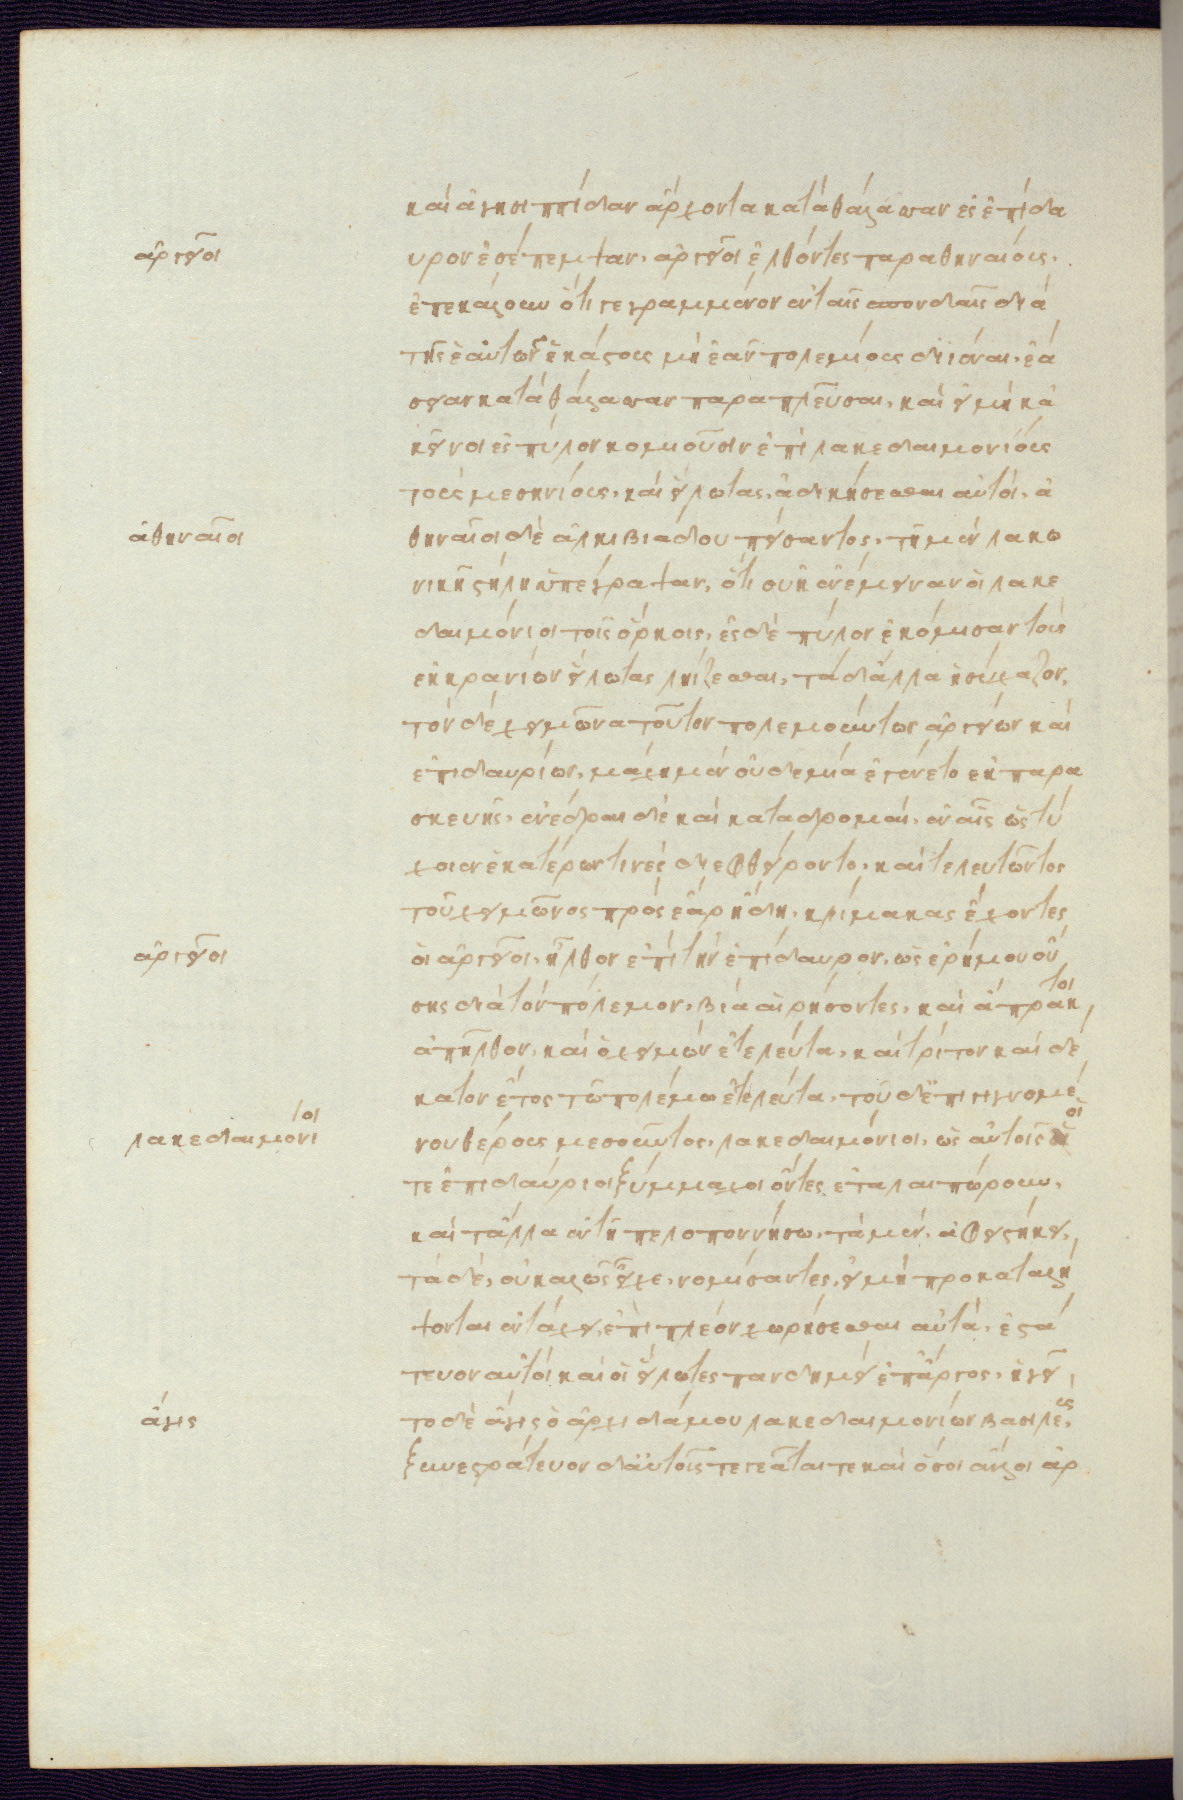 καὶ ἀγησιππίδαν ἄρχοντα κατὰ θάλασσαν ἐς ἐπίδα
ἀργεῖοι
υρον ἐσέπεμψαν. ἀργεῖοι ἐλθόντες παραθηναίους,
ἐπεκάλουν ὅτι γεγραμμένον ἐν ταῖς σπονδαῖς διὰ
τῆς ἑαυτῶν ἑκάστους μὴ ἐᾶν πολεμίους διιέναι, ἐά
σειαν κατὰ θάλασσαν παραπλεῦσαι, καὶ εἰ μὴ κἀ
κεῖνοι ἐς πύλον κομιοῦσιν ἐπὶ λακεδαιμονίους
τοὺς μεσηνίους, καὶ εἵλωτας, ἀδικήσεσθαι αὐτοί. ἀ
ἀθηναῖοι
θηναῖοι δὲ ἀλκιβιάδου πείσαντος, τῇ μὲν λακω
νικῇ στήλῃ ὑπέγραψαν, ὅτι οὐκ ἐνέμειναν οἱ λακε
δαιμόνιοι τοῖς ὅρκοις, ἐς δὲ πύλον ἐκόμισαν τοὺς
ἐκ κρανίων εἵλωτας λήζεσθαι, τὰ δ' ἄλλα ἡσύχαζον,
τὸν δὲ χειμῶνα τοῦτον πολεμούντων ἀργείων καὶ
ἐπιδαυρίων, μάχη μὲν οὐδεμία ἐγένετο ἐκ παρα
σκευῆς, ἐνέδραι δὲ καὶ καταδρομαί, ἐν αἷς ὡς τύ
χοιεν ἑκατέρων τινὲς διεφθείροντο, καὶ τελευτῶντος
τοῦ χειμῶνος πρὸς ἔαρ ἤδη, κλίμακας ἔχοντες
ἀργεῖοι
οἱ ἀργεῖοι, ἦλθον ἐπὶ τὴν ἐπίδαυρον, ὡς ἐρήμου οὔ
σης διὰ τὸν πόλεμον, βίᾳ αἱρήσοντες, καὶ ἄπρακτοι
ἀπῆλθον, καὶ ὁ χειμὼν ἐτελεύτα, καὶ τρίτον καὶ δέ
κατον ἔτος τῷ πολέμῳ ἐτελεύτα. τοῦ δ' ἐπιγιγνομέ
λακεδαιμόνιοι
νου θέρους μεσοῦντος, λακεδαιμόνιοι, ὡς αὐτοῖς οἵ
τε ἐπιδαύριοι ξύμμαχοι ὄντες ἐταλαιπώρουν,
καὶ τἄλλα ἐν τῇ πελοποννήσῳ, τὰ μὲν, ἀφειστήκει,
τὰ δὲ, οὐ καλῶς εἶχε, νομίσαντες, εἰ μὴ προκαταλή
ψονται ἐν τάχει, ἐπὶ πλέον χωρήσεσθαι αὐτά, ἐστρά
τευον αὐτοὶ καὶ οἱ εἵλωτες πανδημεὶ ἐπ' ἄργος, ἡγεῖ
ἆγις
το δὲ ἆγις ὁ ἀρχιδάμου λακεδαιμονίων βασιλεύς,
ξυνεστράτευον δ' αὐτοῖς τεγεᾶταί τε καὶ ὅσοι ἄλλοι ἀρ